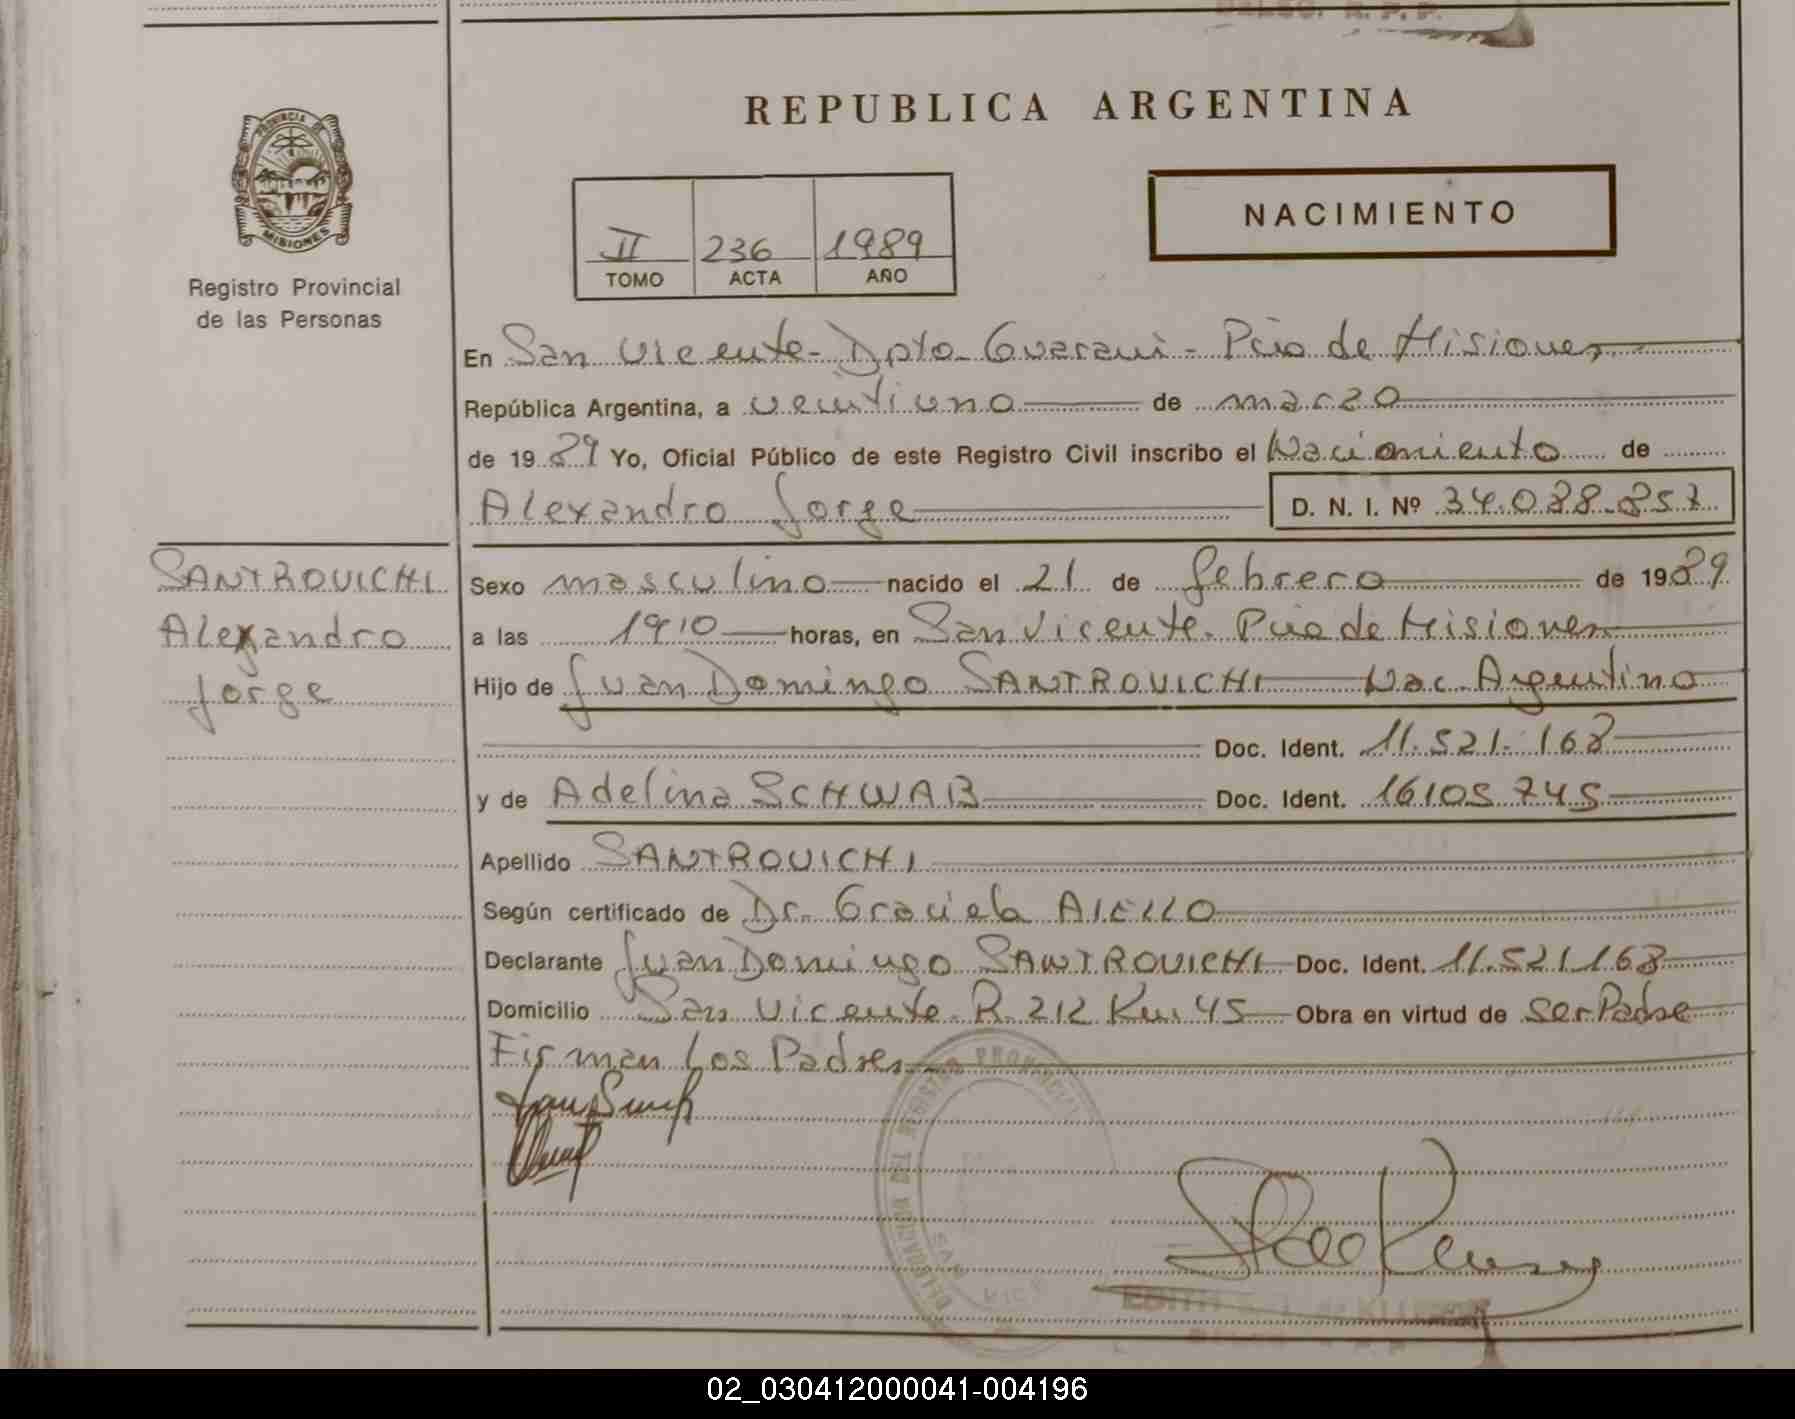 DELEG. R. P. P.
REPUBLICA ARGENTINA
PROVINCIA DE
MISIONES
Registro Provincial
de las Personas
II 236 1989
TOMO ACTA AÑO
NACIMIENTO
En San Vicente - Dpto - Guarani - Pcia de Misiones
República Argentina, a veintiuno de marzo
de 1989 Yo, Oficial Público de este Registro Civil inscribo el Nacimiento de
Alexandro Jorge D. N. I. Nº 34.088.857
SANTROVICHI
Alexandro
Jorge
Sexo masculino nacido el 21 de febrero de 1989
a las 1910 horas, en San Vicente - Pcia de Misiones
Hijo de Juan Domingo SANTROVICHI Nac. Argentino
Doc. Ident. 11.521.168
y de Adelina SCHWAB Doc. Ident. 16105745
Apellido SANTROVICHI
Según certificado de Dr. Graciela AIELLO
Declarante Juan Domingo SANTROVICHI Doc. Ident. 11.521.168
Domicilio San Vicente - R. 212 Km 45 Obra en virtud de ser Padre
Firman los Padres
DELEGACION DEL REGISTRO PROVINCIAL
SAN VICE
EDITH
02_030412000041-004196